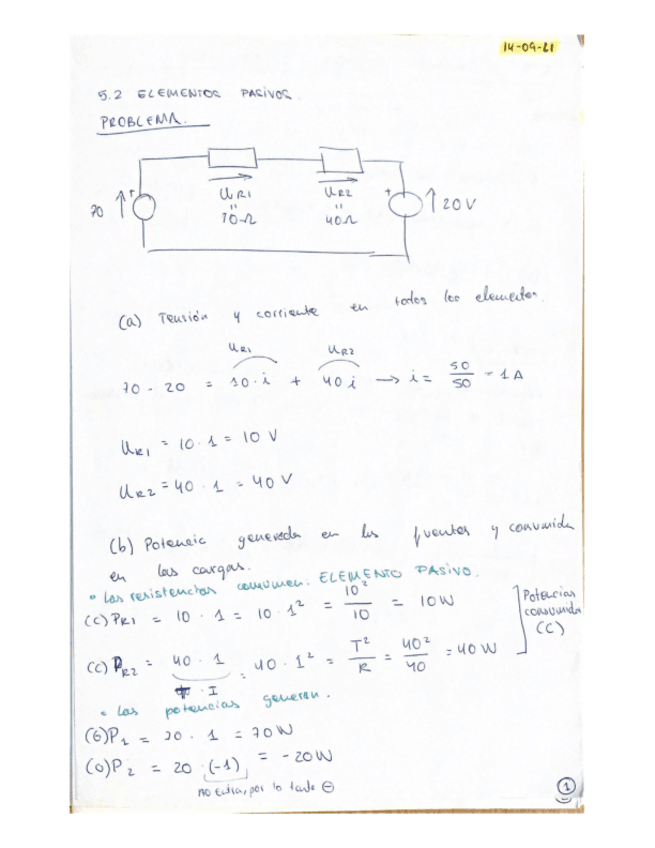 14-09-21
5.2 ELEMENTOS PASIVOS.
PROBLEMA.
70
UR1
UR2
+
20V
"
"
10Ω
40Ω
(a) Tensión y corriente en todos los elementos.
UR1
UR2
70 - 20 = 10·i + 40 i → i = 50/50 = 1A
UR1 = 10·1 = 10 V
UR2 = 40·1 = 40 V
(b) Potencia generada en las fuentes y consumida
en las cargas.
• Las resistencias consumen. ELEMENTO PASIVO.
(C) PR1 = 10·1 = 10·1² = 10²/10 = 10W
Potencias
consumida
(C)
(C) PR2 = 40·1 = 40·1² = T²/R = 40²/40 = 40W
· I
• Las potencias generan.
(G) P1 = 70·1 = 70W
P2 = 20·(-1) = -20W
no entra, por lo tanto ⊖
1